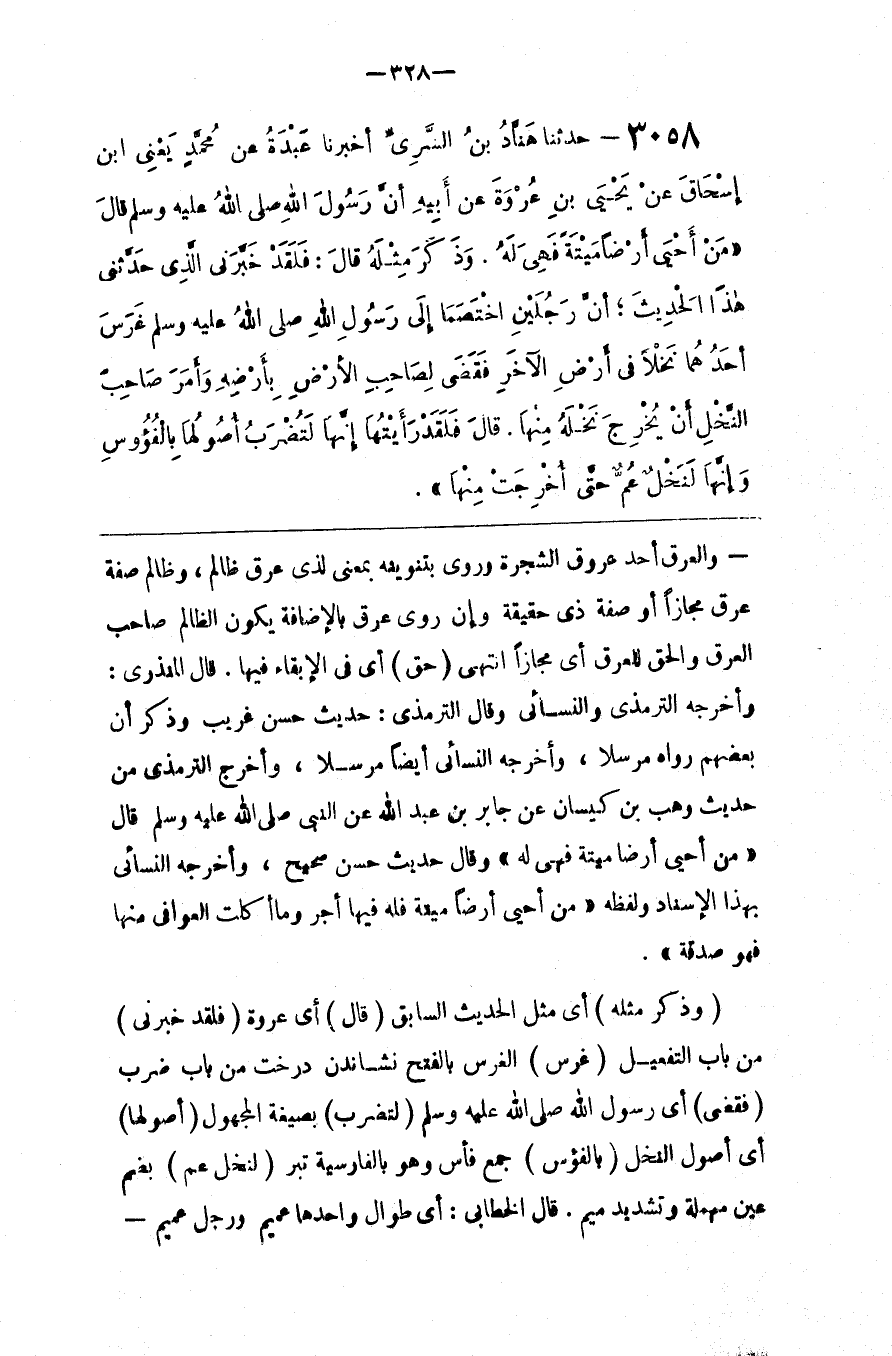 —٣٢٨—
٣٠٥٨ — حدثنا هَنَّادُ بنُ السَّرِىِّ أخبرنا عَبْدَةُ عن مُحَمَّدٍ يَعْنِى ابن
إِسْحَاقَ عنْ يَحْيَى بنِ عُرْوَةَ عن أَبِيهِ أنَّ رَسُولَ اللهِ صلى اللهُ عليه وسلم قالَ
« مَنْ أَحْيَى أَرْضاً مَيْتَةً فَهِىَ لَهُ . وَذَكَرَ مِثْلَهُ قالَ : فَلَقَدْ خَبَّرَنى الَّذِى حَدَّثَنى
هٰذَا الْحَدِيثَ ؛ أنَّ رَجُلَيْنِ اخْتَصَمَا إِلَى رَسُولِ اللهِ صلى اللهُ عليه وسلم غَرَسَ
أَحَدُهُمَا نَخْلاً فى أَرْضِ الآخَرِ فَقَضَى لِصَاحِبِ الأرْضِ بِأَرْضِهِ وَأَمَرَ صَاحِبَ
النَّخْلِ أَنْ يُخْرِجَ نَخْلَهُ مِنْهَا . قالَ فَلَقَدْ رَأَيْتُهَا إِنَّهَا لَتُضْرَبُ أُصُولُهَا بِالْفُؤُوسِ
وَإِنَّهَا لَنَخْلٌ عُمٌّ حَتَّى أُخْرِجَتْ مِنْهَا » .
— والعرق أحد عروق الشجرة وروى بتنوينه بمعنى لذى عرق ظالم ، وظالم صفة
عرق مجازاً أو صفة ذى حقيقة وإن روى عرق بالإضافة يكون الظالم صاحب
العرق والحق للعرق أى مجازاً انتهى ( حق ) أى فى الإبقاء فيها . قال المنذرى :
وأخرجه الترمذى والنسائى وقال الترمذى : حديث حسن غريب وذكر أن
بعضهم رواه مرسلا ، وأخرجه النسائى أيضاً مرسلا ، وأخرج الترمذى من
حديث وهب بن كيسان عن جابر بن عبد الله عن النبى صلى الله عليه وسلم قال
« من أحيى أرضا ميتة فهى له » وقال حديث حسن صحيح ، وأخرجه النسائى
بهذا الإسناد ولفظه « من أحيى أرضاً ميتة فله فيها أجر وما أكلت العوافى منها
فهو صدقة » .
( وذكر مثله ) أى مثل الحديث السابق ( قال ) أى عروة ( فلقد خبرنى )
من باب التفعيل ( غرس ) الغرس بالفتح نشاندن درخت من باب ضرب
( فقضى ) أى رسول الله صلى الله عليه وسلم ( لتضرب ) بصيغة المجهول ( أصولها )
أى أصول النخل ( بالفؤس ) جمع فأس وهو بالفارسية تبر ( لنخل عم ) بضم
عين مهملة وتشديد ميم . قال الخطابى : أى طوال واحدها عميم ورجل عميم —